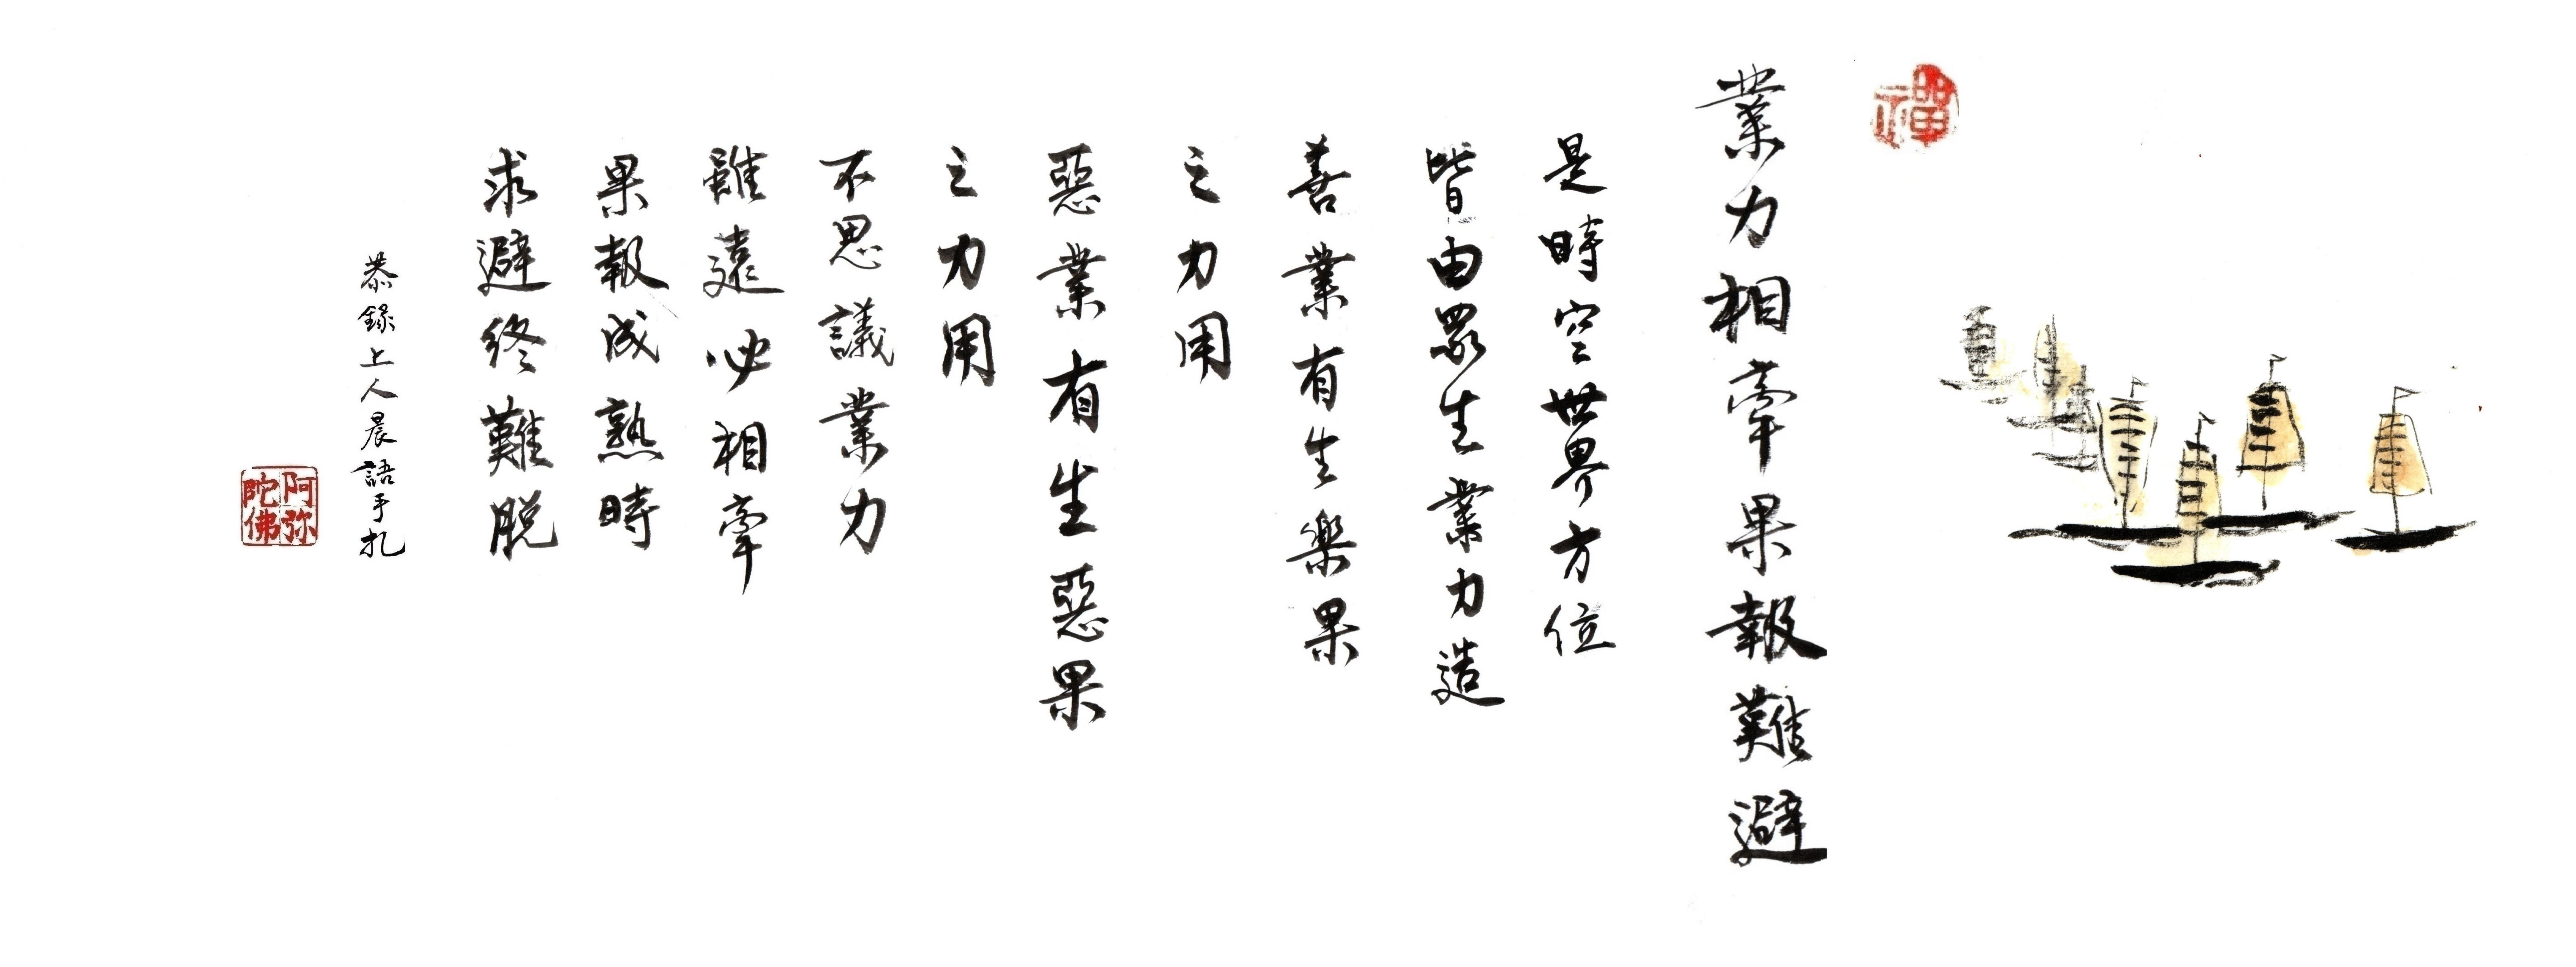 禪
業力相牽果報難避
是時空世界方位
皆由眾生業力造
善業有生樂果
之力用
惡業有生惡果
之力用
不思議業力
雖遠必相牽
果報成熟時
求避終難脫
恭錄上人晨語手札
阿弥
陀佛